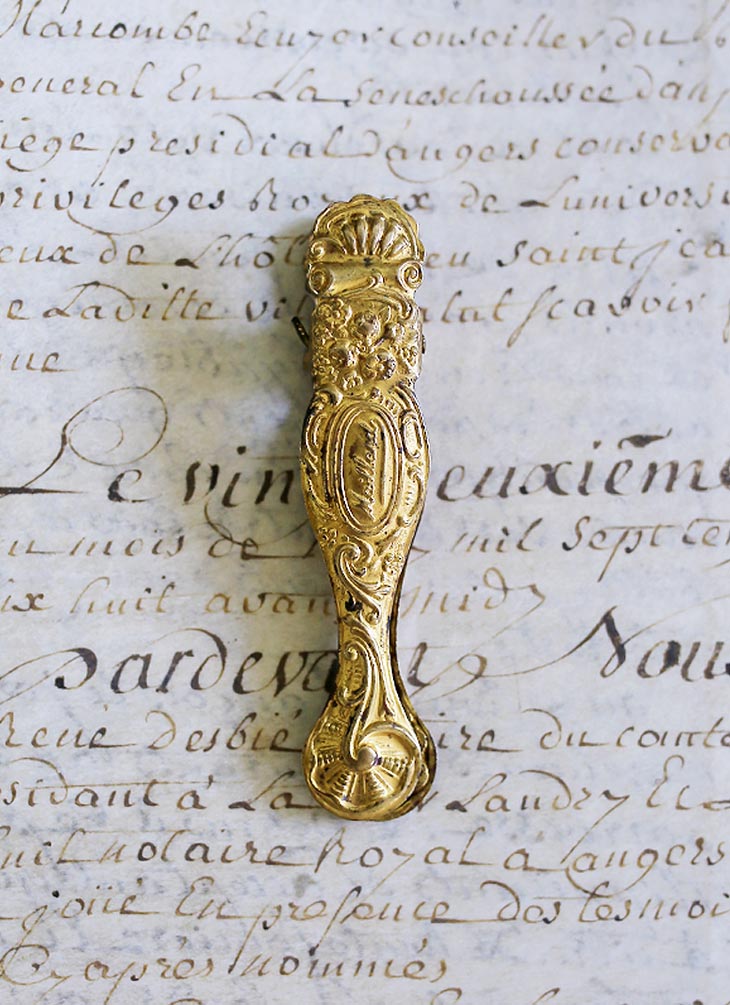 conseiller du
general En La Seneschaussée d'an
iége presidial d'angers conserva
privileges Royaux de Lunivers
eux de Lhôt eu saint jea
e Laditte vil scavoir
que
Le vin euxième
u mois de mil sept
ix huit avan midy
Pardevant Nous
René Desbié ire du
sidant à La Landry Et
notaire Royal à angers
En presence des tesmoi
Cy après nommés